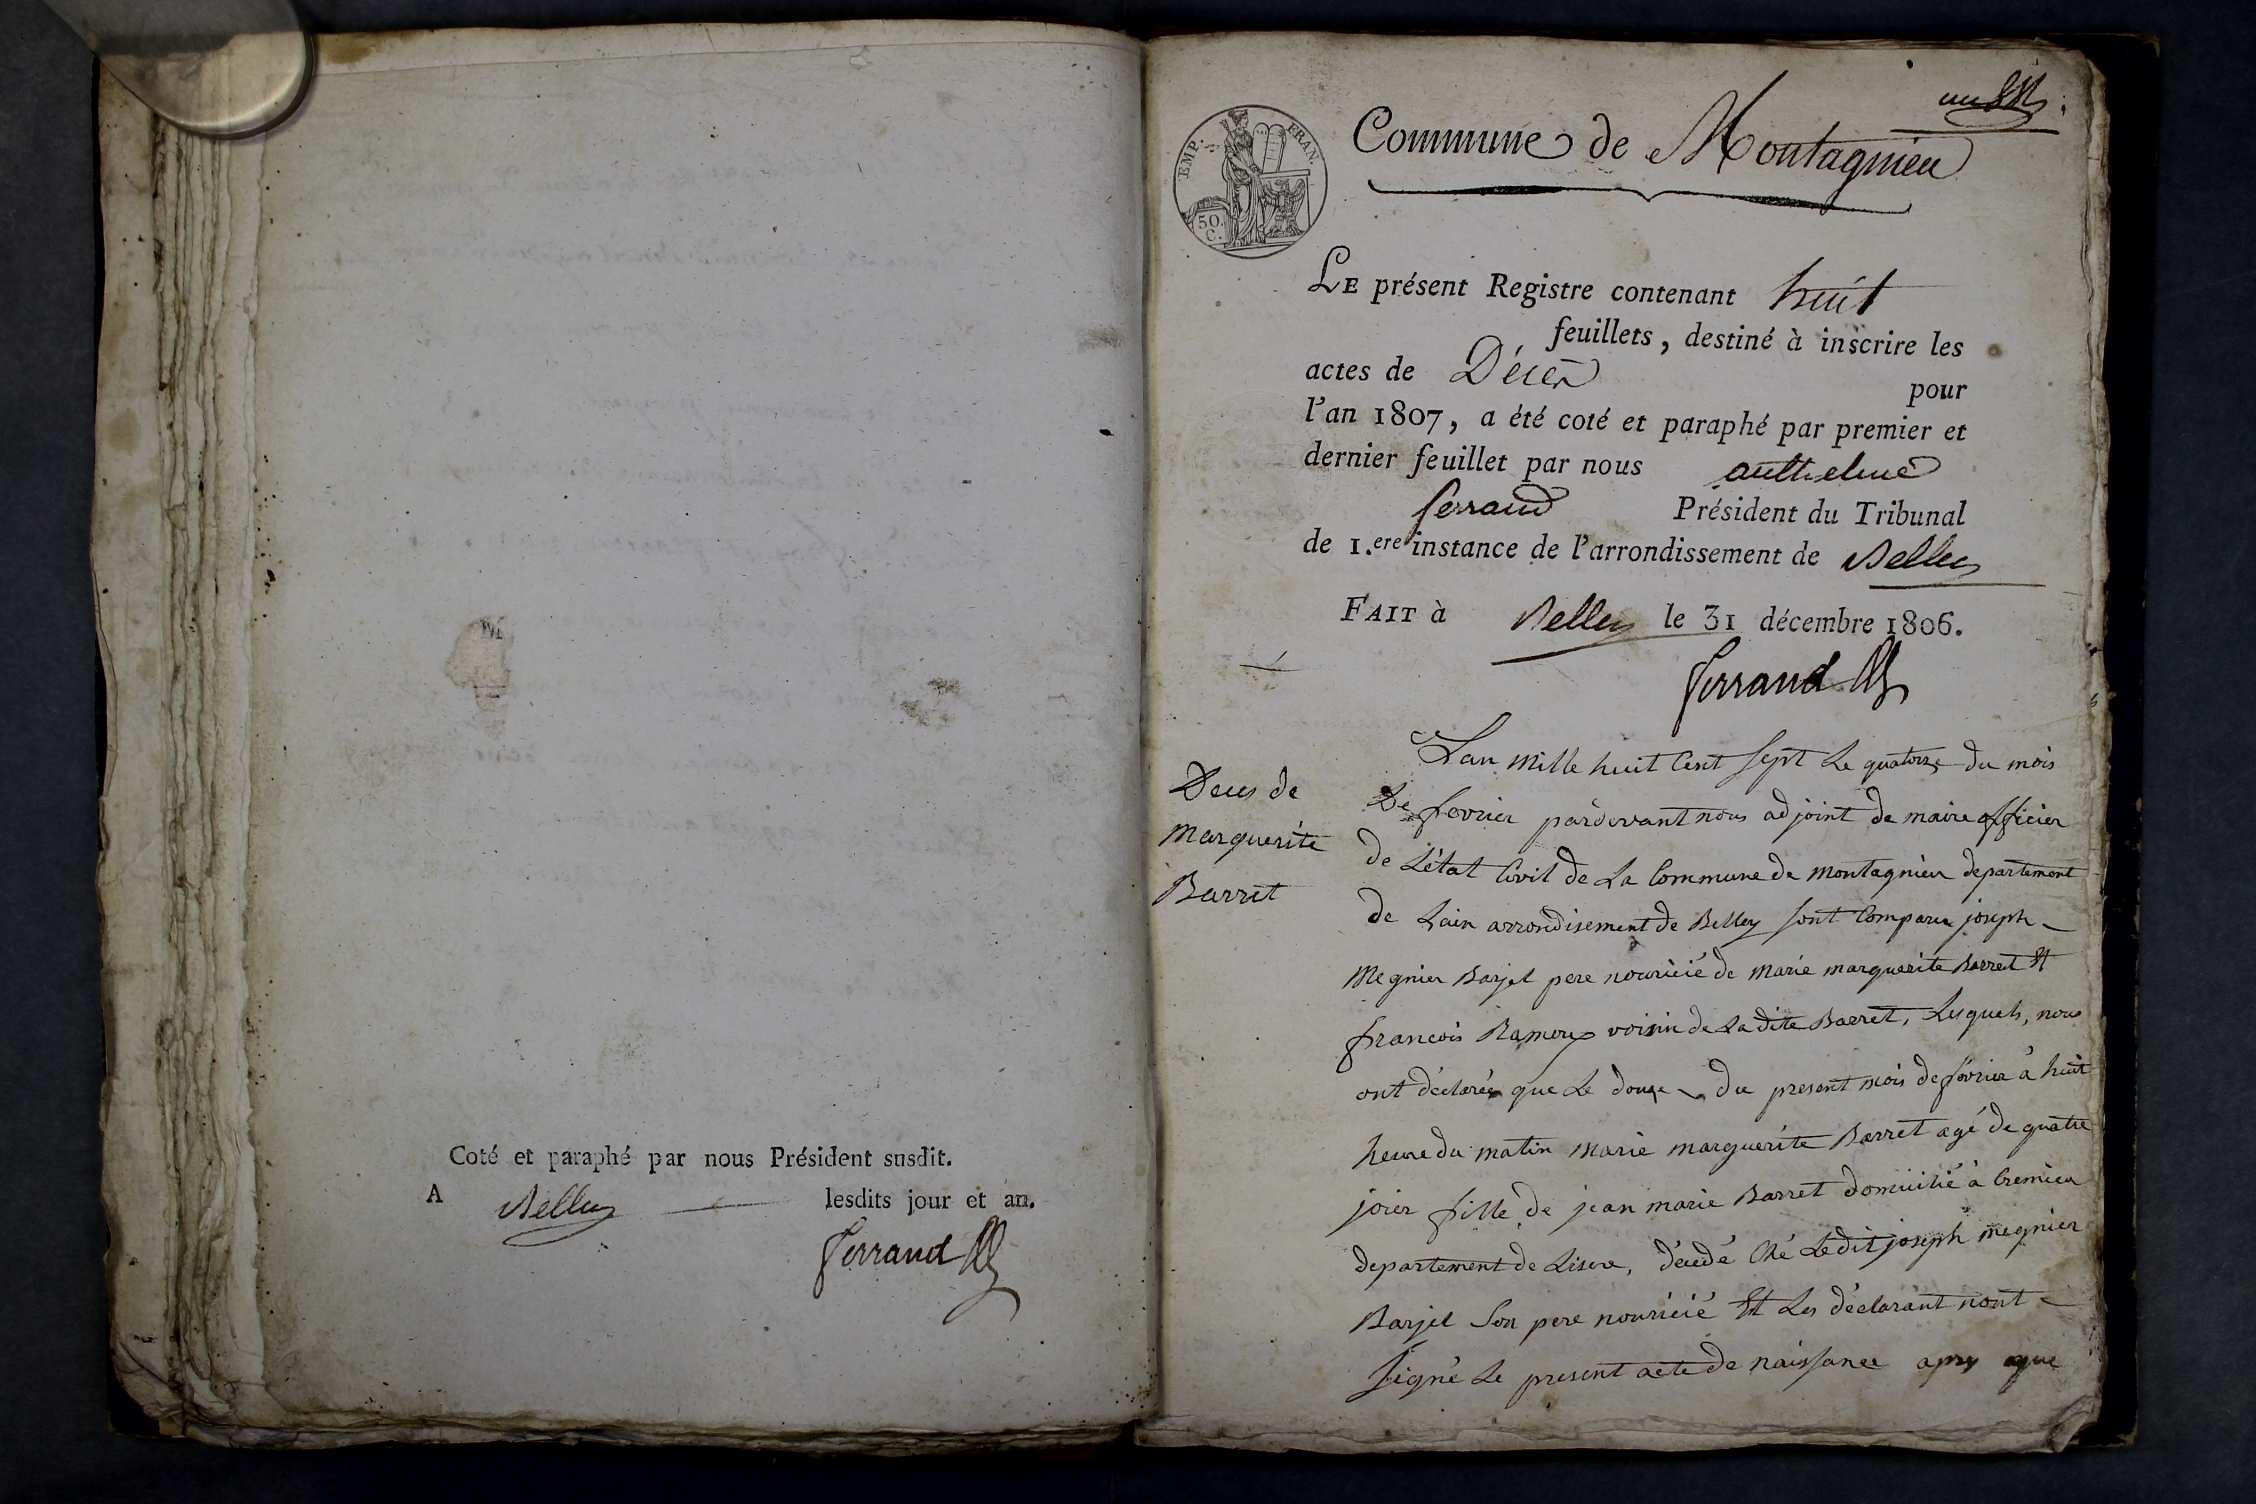 Coté et paraphé par nous Président susdit.
A Belley lesdits jour et an.
Ferrand
un
EMP. FRAN.
50.
C.
Commune de Montagnieu
LE présent Registre contenant huit
feuillets, destiné à inscrire les
actes de Décès pour
l'an 1807, a été coté et paraphé par premier et
dernier feuillet par nous anthelme
ferrand Président du Tribunal
de 1.ere instance de l'arrondissement de Belley
FAIT à Belley le 31 décembre 1806.
Ferrand
Deces de
Marguerite
Barret
Lan mille huit Cent Sept Le quatorze du mois
De fevrier pardevant nous adjoint de maire officier
de Létat Civil de La Commune de montagnieu departement
de Lain arrondisement de Belley sont Comparu joseph
Megnier Barjet pere nouricié de Marie marguerite Barret Et
françois Ramoux voisin de La dite Barret, Lesquels, nous
ont déclarée que Le douze du present mois de fevrier à huit
heure du matin Marie marguerite Barret agé de quatre
joier fille de jean marie Barret domicilié à Cremieu
departement de Lisere, décedé Ché Ledit joseph megnier
Barjet Son pere nouricié Et Les déclarant nont
signé Le present acte de naissance apres que